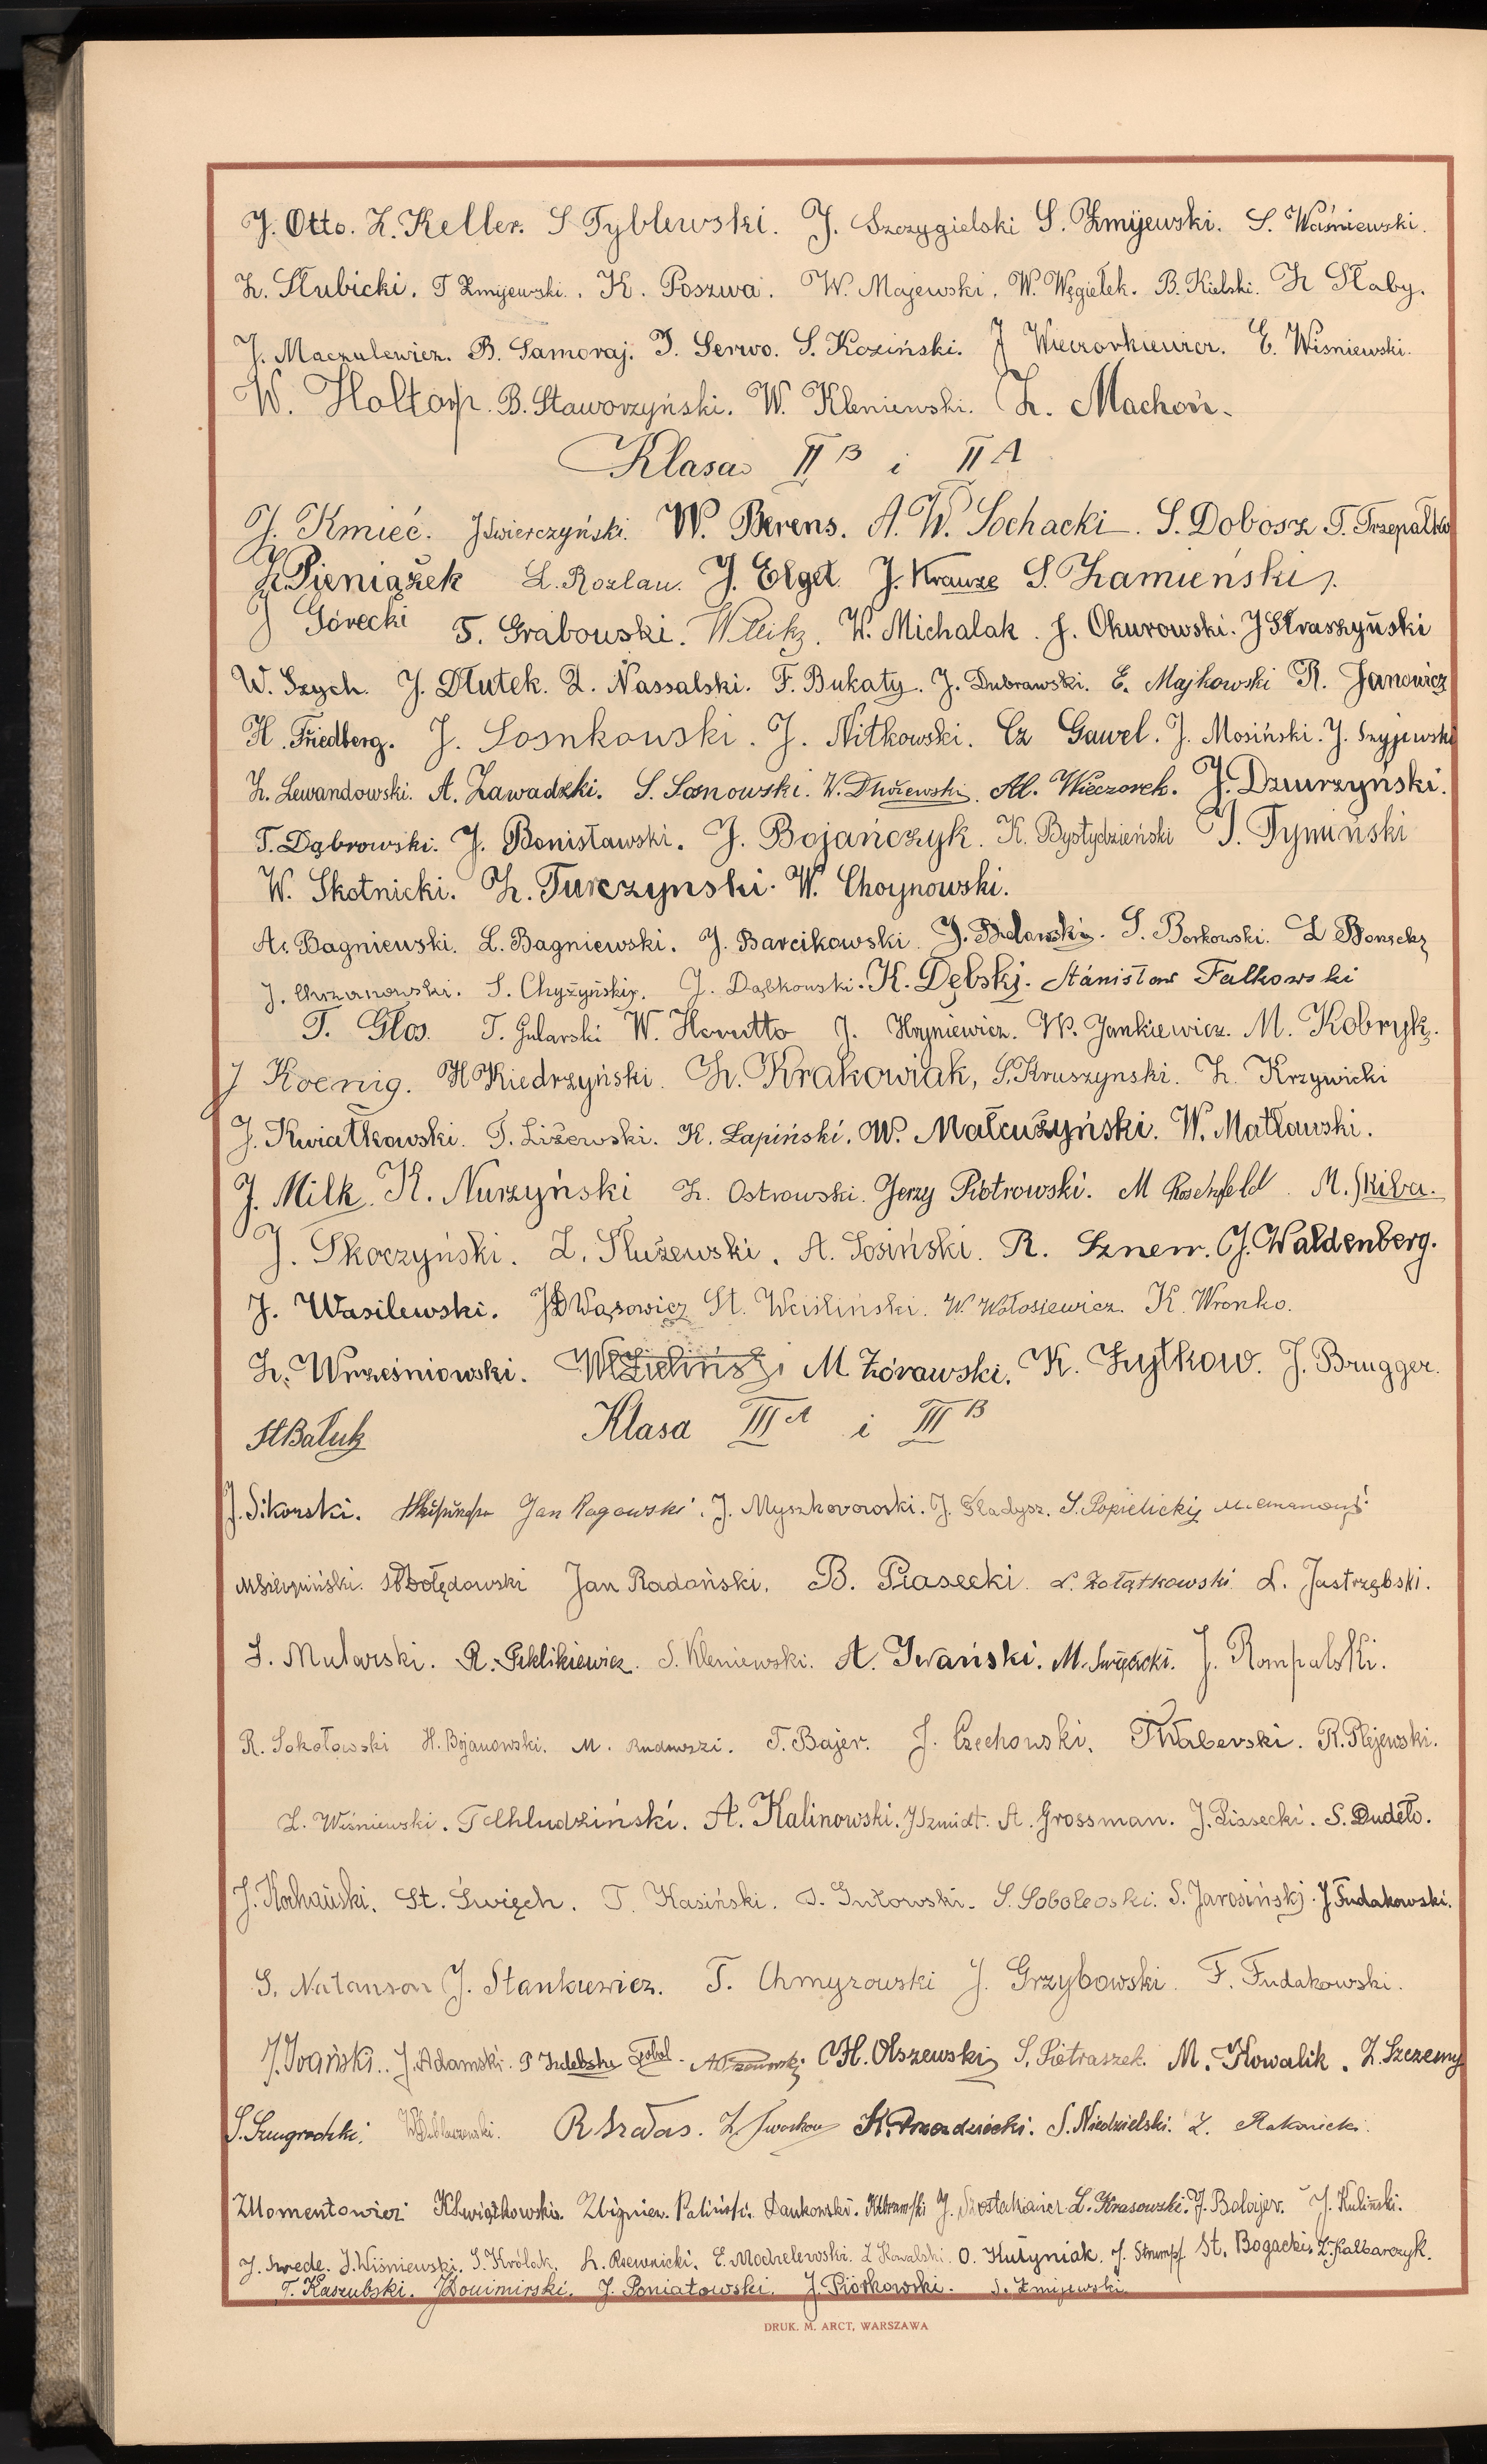 J. Otto. Z. Keller. S Tyblewski. J. Szczygielski S. Żmijewski. S. Waśniewski.
Z. Słubicki. T Żmijewski. K. Poszwa. W. Majewski. W. Węgiełek. B. Kielski. Z Słaby.
J. Maczulewicz. B. Samoraj. T. Serwo. S. Koziński. J Wieczorkiewicz. E. Wiśniewski.
W. Holtorp. B. Staworzyński. W. Kleniewski. Z. Machoń.
Klasa II B i II A
J. Kmieć. J Świerczyński. W. Berens. A. W. Sochacki. S. Dobosz T. Trzepałko
Z. Pieniążek L. Rozlau. J. Elget J. Krauze S. Zamieński.
J Górecki T. Grabowski. W. Michalak. J. Okurowski. J Straszyński
W. Szych. J. Dłutek. Z. Nassalski. F. Bukaty. J. Dubrawski. E. Majkowski R. Janowicz
H. Friedberg. J. Sosnkowski. J. Nitkowski. Cz Gaweł. J. Mosiński. J. Szyjewski
Z. Lewandowski. A. Zawadzki. S. Sosnowski. W. Dłużewski. Al. Wieczorek. J. Dziurzyński.
T. Dąbrowski. J. Bonisławski. J. Bojańczyk. K. Bystydzieński J. Tymiński
W. Skotnicki. Z. Turczynski. W. Choynowski.
A. Bagniewski. L. Bagniewski. J. Barcikowski. J. Bielawski. S. Borkowski. L
J. Chrzanowski. S. Chyżyński. J. Dąbkowski. K. Dębski. Stanisław Falkowski
T. Głos. T. Gularski W. Horutto J. Hryniewicz. W. Jankiewicz. M. Kobryń.
J Koenig. H Kiedrzyński. Z. Krakowiak, S. Kruszynski. Z. Krzywicki
J. Kwiatkowski. T. Liżewski. K. Łapiński. W. Małcużyński. W. Matławski.
J. Milk. K. Nurzyński Z. Ostrowski. Jerzy Piotrowski. M Rosenfeld. M. Skiba.
J. Skoczyński. Z. Służewski. A. Sosiński. R. Sznerr. J. Waldenberg.
J. Wasilewski. J Wąsowicz St. Weiśliński. W. Wołosiewicz. K. Wronko.
Z. Wrześniowski. W Zieliński M Żórawski. K. Żytkow. J. Brugger.
St Bałuk Klasa III A i III B
J. Sikorski. Jan Rogowski. J. Myszkorowski. J. Gładysz. S. Popielicki
M Sierpiński. Żołędowski Jan Radoński. B. Piasecki. L. Żołątkowski. L. Jastrzębski.
S. Mularski. R. Peklikiewicz. S. Kleniewski. A. Iwański. M. Święcicki. J. Rompalski.
R. Sokołowski H. Bojanowski. M. T. Bajer. J. Czechowski. T Waberski. R. Plejewski.
L. Wiśniewski. T Chludziński. A. Kalinowski. J Szmidt. A. Grossman. J. Piasecki. S. Dudełło.
J. Kochański. St. Święch. T. Kasiński. J. Gutowski. S. Sobolewski. S. Jarosiński. J Fudakowski.
S. Natanson J. Stankiewicz. T. Chmyzowski J. Grzybowski. F. Fudakowski.
J. Iwański. J. Adamski. Sobol. H. Olszewski S. Pietraszek. M. Kowalik. Z. Szczemy
S. R Szałas. Z. Iwaszkow K. Drozdziecki. S. Niedzielski. Z. Rakowicki.
Z Momentowicz K Kwiatkowski. Zbigniew Paliński. Dankowski. J. Szostakiewicz L. Krasowski. J. Balajer. J. Kuliński.
J. Szwede. J. Wiśniewski. S. Królak. Z. Rzewnicki. E. Modzelewski. Z Kowalski. O. Hutyniak. J. Strumpf St. Bogacki. Z. Kalbarczyk.
T. Kaszubski. J Donimirski. J. Poniatowski. J. Piórkowski. S. Żmijewski.
DRUK. M. ARCT, WARSZAWA